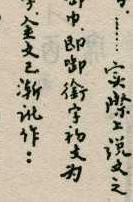 ……实际上说文之
御巾,即御衔字初文为
金文已渐讹作: